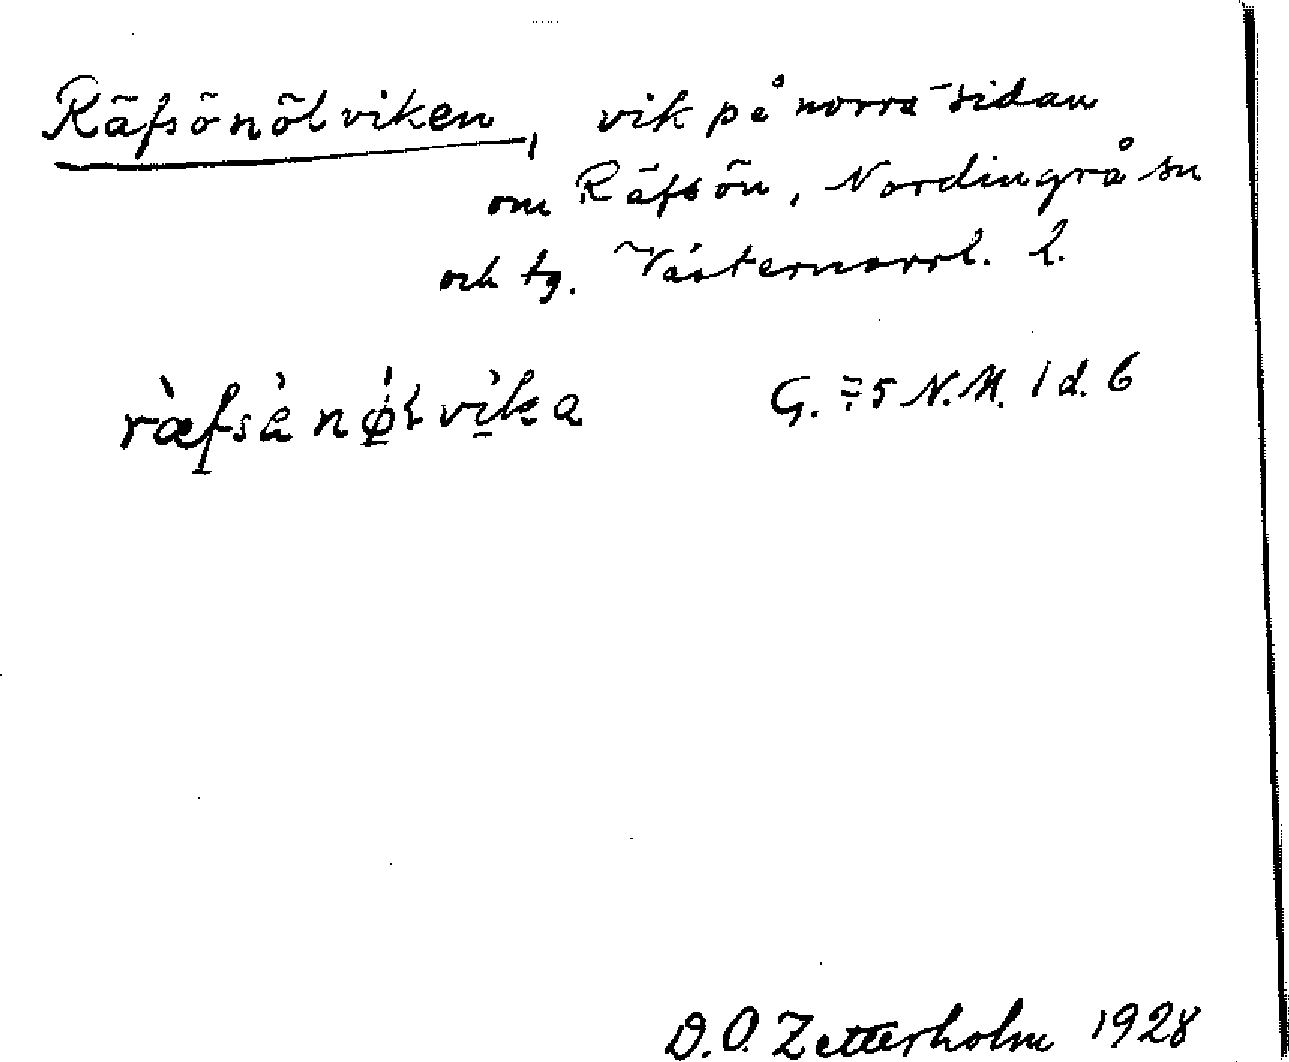 Räfsönölviken, vik på norra sidan
om Räfsön, Nordingrå sn
och tg. Västernorrl. l.
ràefsànǿlvìka G. 75 N.M. 1 d. 6
D.O. Zetterholm 1928